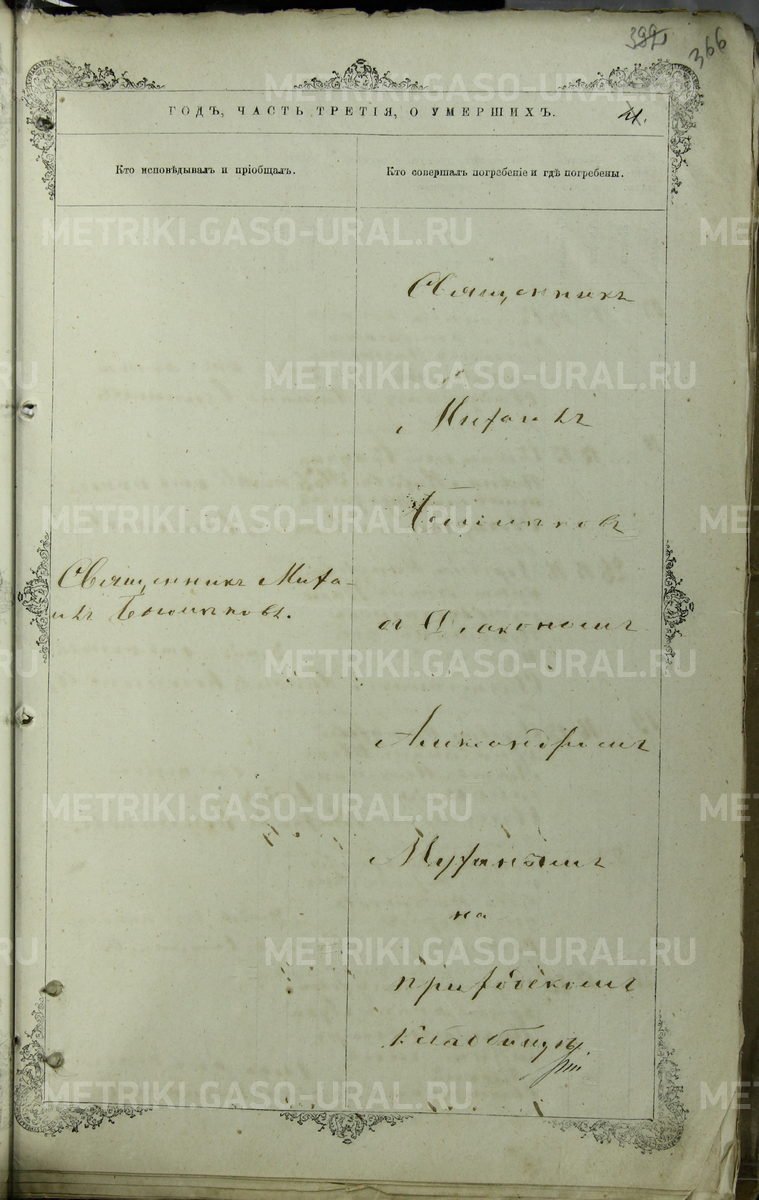 399
366
ГОДЪ, ЧАСТЬ ТРЕТІЯ, О УМЕРШИХЪ.
21.
Кто исповѣдывалъ и пріобщалъ.
Кто совершалъ погребеніе и гдѣ погребены.
METRIKI.GASO-URAL.RU
Священникъ
Михаилъ
Священникъ Миха-
илъ
съ Діакономъ
Александромъ
на
приходскомъ
кладбищѣ.